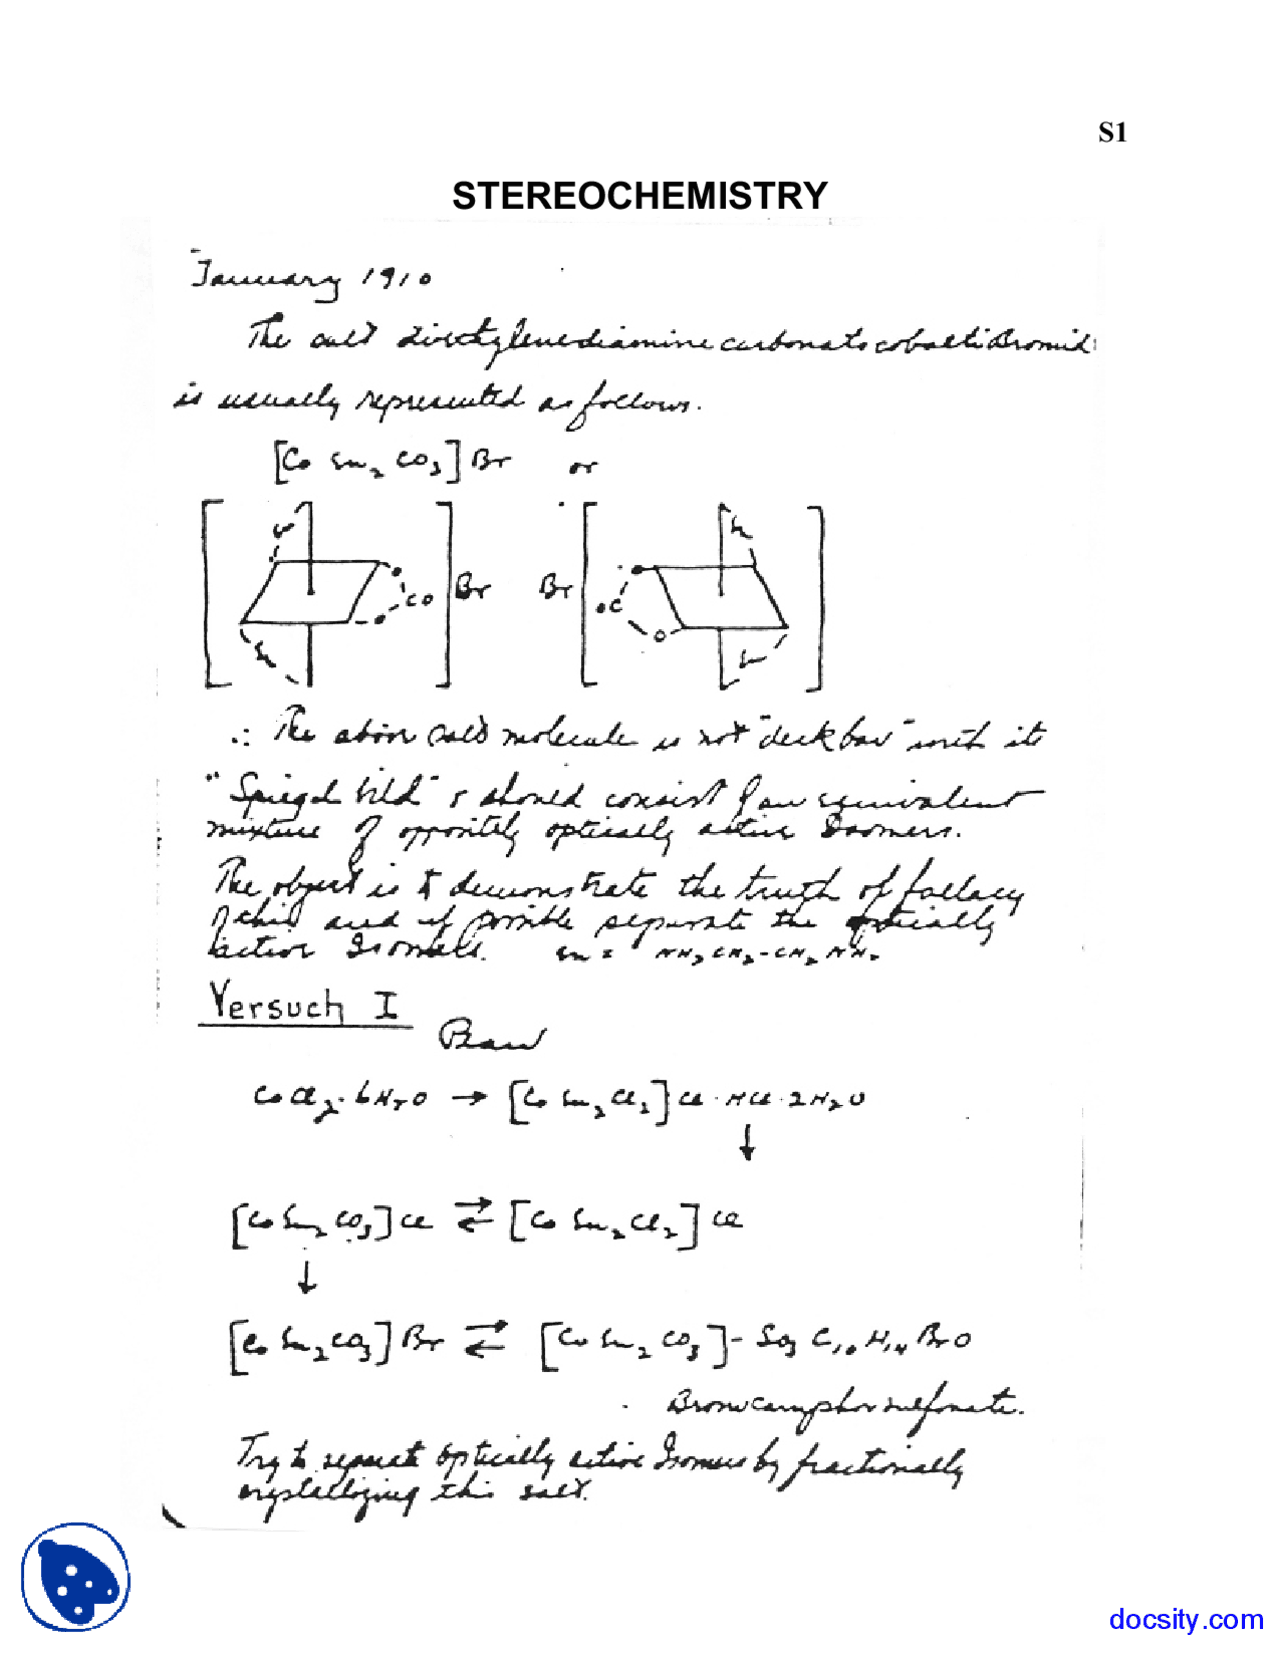 S1
STEREOCHEMISTRY
January 1910
The salt diethylenediamine carbonato cobaltibromid
is usually represented as follows.
[Co En₂ CO₃] Br or
Br Br
CO
∴ The above salt molecule is not "deckbar" with its
"Spiegelbild" & should consist of an equivalent
mixture of oppositely optically active Isomers.
The object is to demonstrate the truth of fallacy
of this and if possible separate the optically
active Isomers. En = NH₂CH₂-CH₂NH₂
Versuch I
CoCl₂·6H₂O → [Co En₂Cl₂]Cl·HCl·2H₂O
↓
[CoEn₂CO₃]Cl ⇄ [Co En₂Cl₂]Cl
↓
[Co En₂CO₃]Br ⇄ [Co En₂ CO₃]- SO₃ C₁₀ H₁₄ BrO
Bromcamphorsulfonate.
Try to separate optically active Isomers by fractionally
crystallizing this salt.
docsity.com